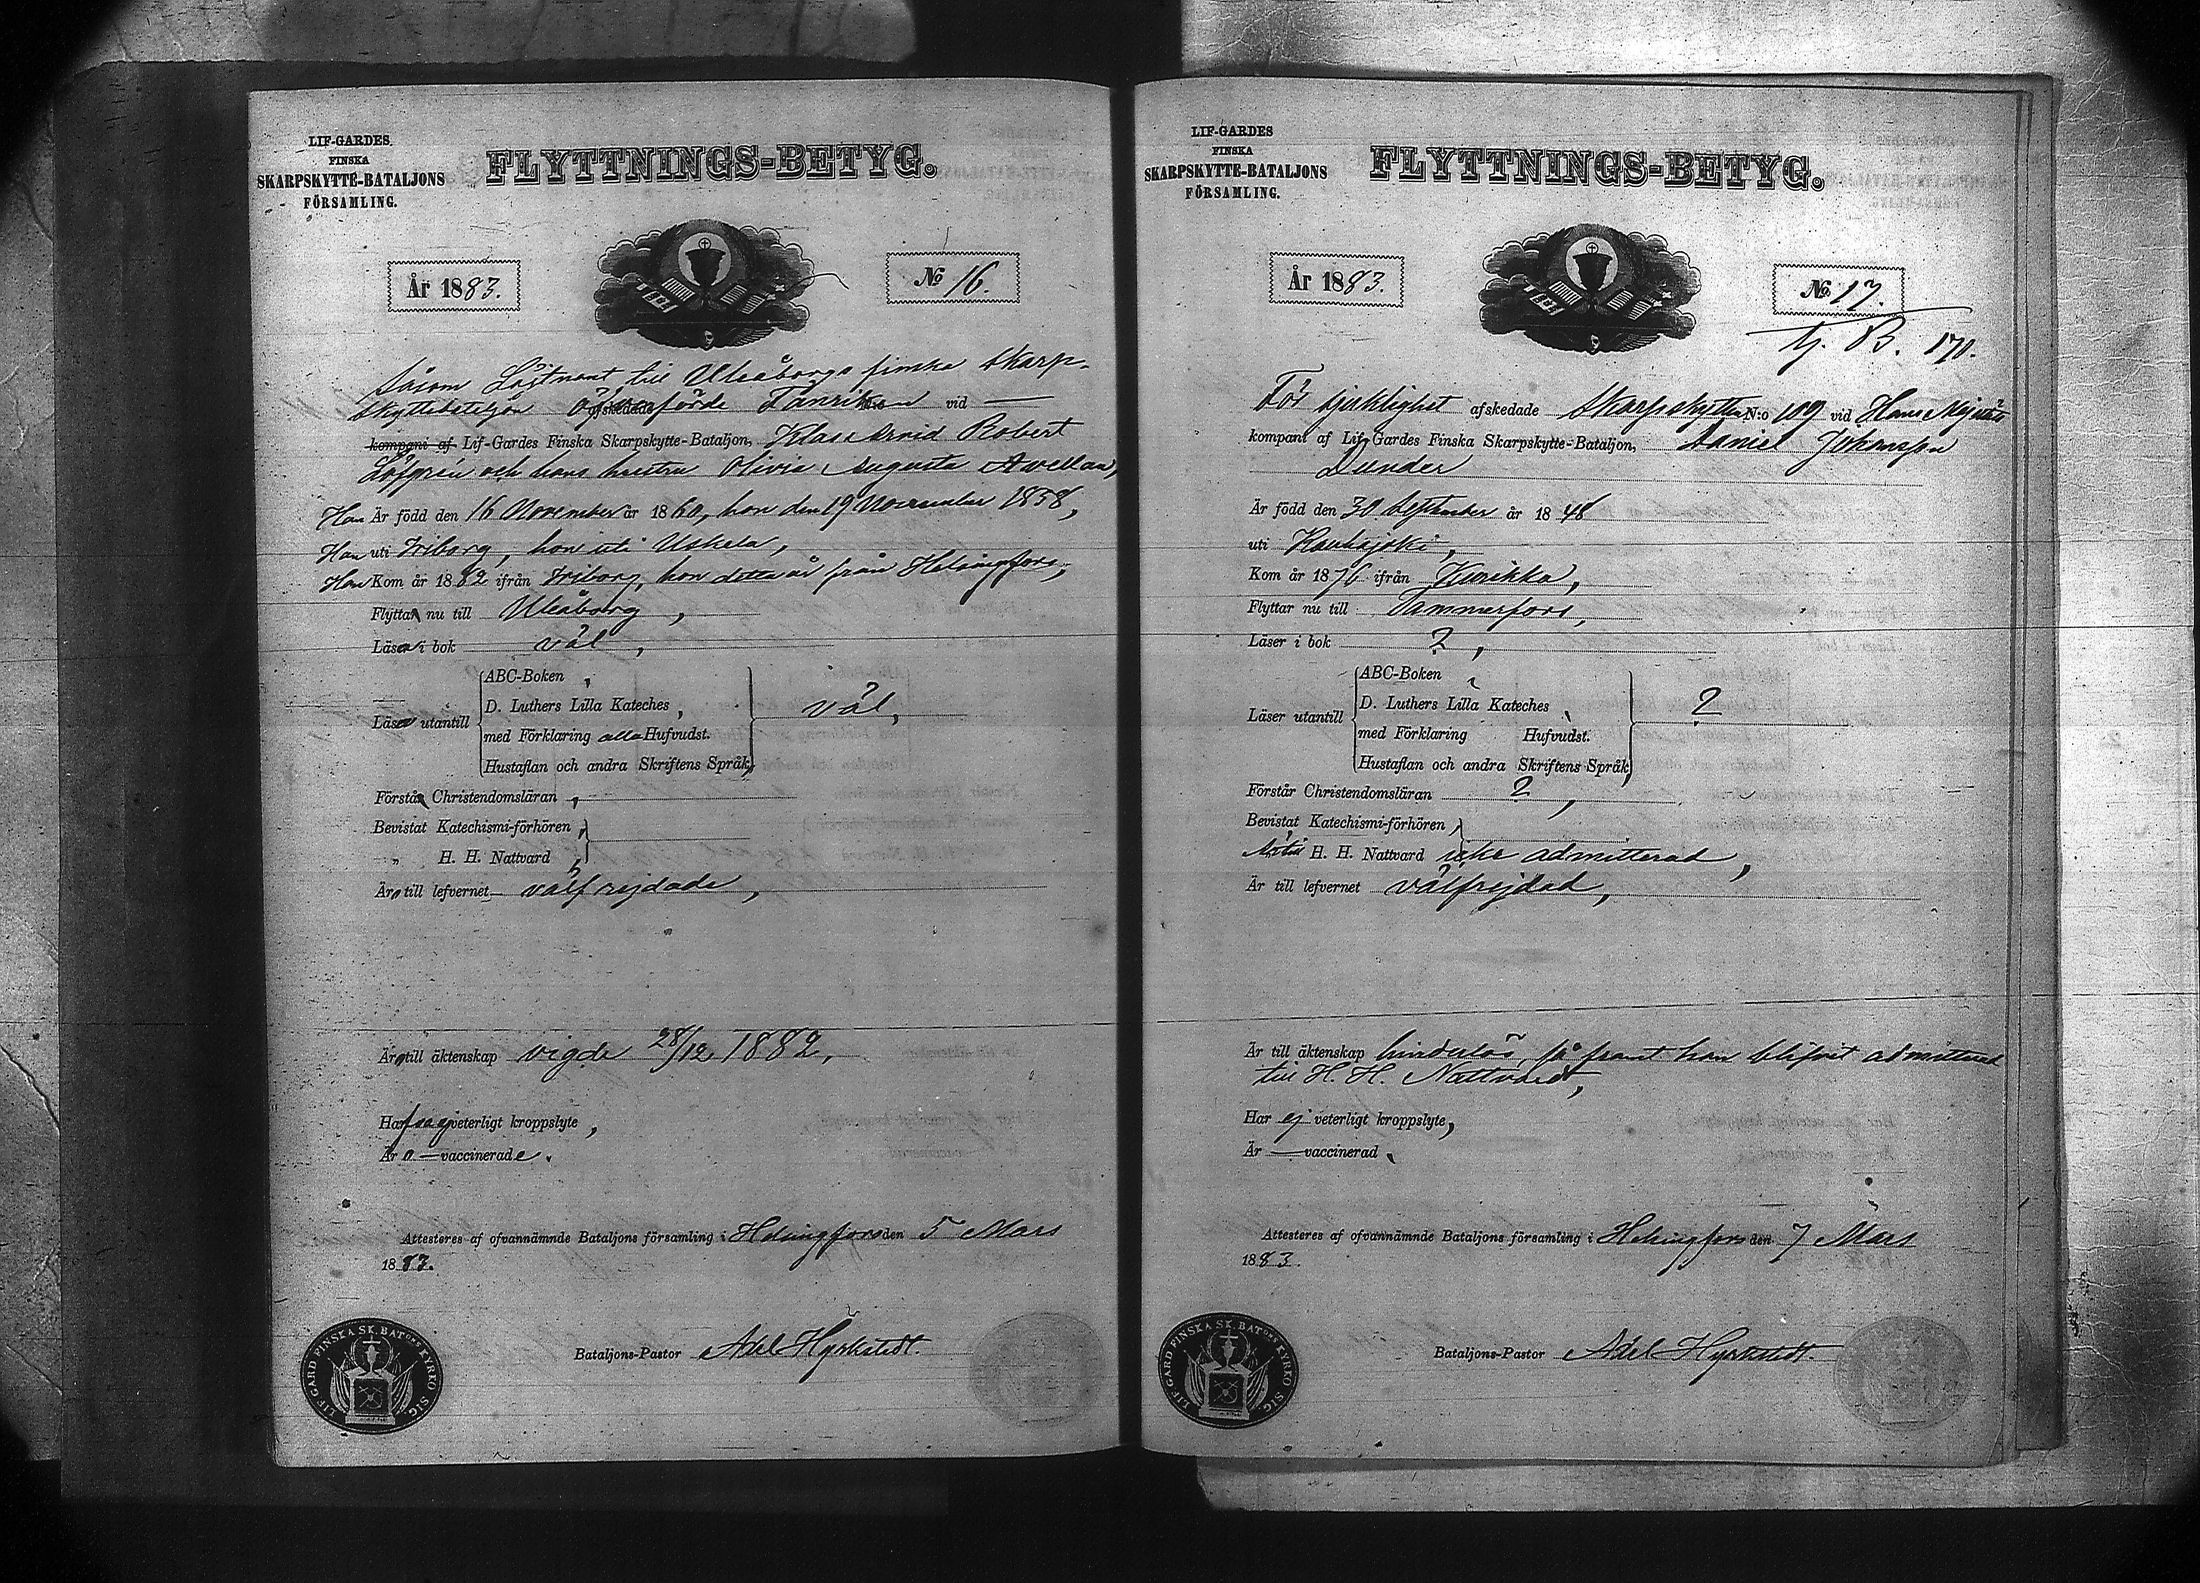 LIF-GARDES
FINSKA
SKARPSKYTTE-BATALJONS
FÖRSAMLING.
FLYTTNINGS-BETYG.
År 1883.
No 16.
Såsom Löjtnant till Uleåborgs finska Skarp-
skyttebataljon öfverförde Fänriken vid —
kompani af Lif-Gardes Finska Skarpskytte-Bataljon, Klas Arvid Robert
Löfgren och hans hustru Olivia Augusta Avellan,
Han Är född den 16 November år 1860, hon den 19 November 1858,
Han uti Wiborg, hon uti Uskela,
Han Kom år 1882 ifrån Wiborg, hon detta år från Helsingfors,
Flytta nu till Uleåborg,
Läsa i bok väl,
Läsa utantill
ABC-Boken,
D. Luthers Lilla Kateches,
med Förklaring alla Hufvudst.
Hustaflan och andra Skriftens Språk,
väl,
Förstå Christendomsläran,
Bevistat Katechismi-förhören,
„ H. H. Nattvard,
Äro till lefvernet välfrejdade,
Äro till äktenskap vigde 28/12 1882,
Hafva ej veterligt kroppslyte,
Äro — vaccinerade.
Attesteras af ofvannämnde Bataljons församling i Helsingfors den 5 Mars
1883.
Bataljons-Pastor Axel Hyrkstedt.
LIF. GARD. FINSKA SK. BATONS KYRKO SIG.
LIF-GARDES
FINSKA
SKARPSKYTTE-BATALJONS
FÖRSAMLING.
FLYTTNINGS-BETYG.
År 1883.
No 17.
B. 170.
För sjuklighet afskedade Skarpskytten N:o 189 vid Hans Majestäts
kompani af Lif-Gardes Finska Skarpskytte-Bataljon, Daniel Johansson
Dunder
Är född den 30 September år 1848
uti Kauhajoki,
Kom år 1876 ifrån Kurikka,
Flyttar nu till Tammerfors,
Läser i bok ?,
Läser utantill
ABC-Boken
D. Luthers Lilla Kateches
med Förklaring Hufvudst.
Hustaflan och andra Skriftens Språk,
?
Förstår Christendomsläran ?,
Bevistat Katechismi-förhören,
H. H. Nattvard icke admitterad,
Är till lefvernet välfrejdad,
Är till äktenskap hinderlös, så framt han blifvit admitterad
till H. H. Nattvard,
Har ej veterligt kroppslyte,
Är — vaccinerad.
Attesteres af ofvannämnde Bataljons församling i Helsingfors den 7 Mars
1883.
Bataljons-Pastor Axel Hyrkstedt.
LIF. GARD FINSKA SK. BATONS KYRKO SIG.